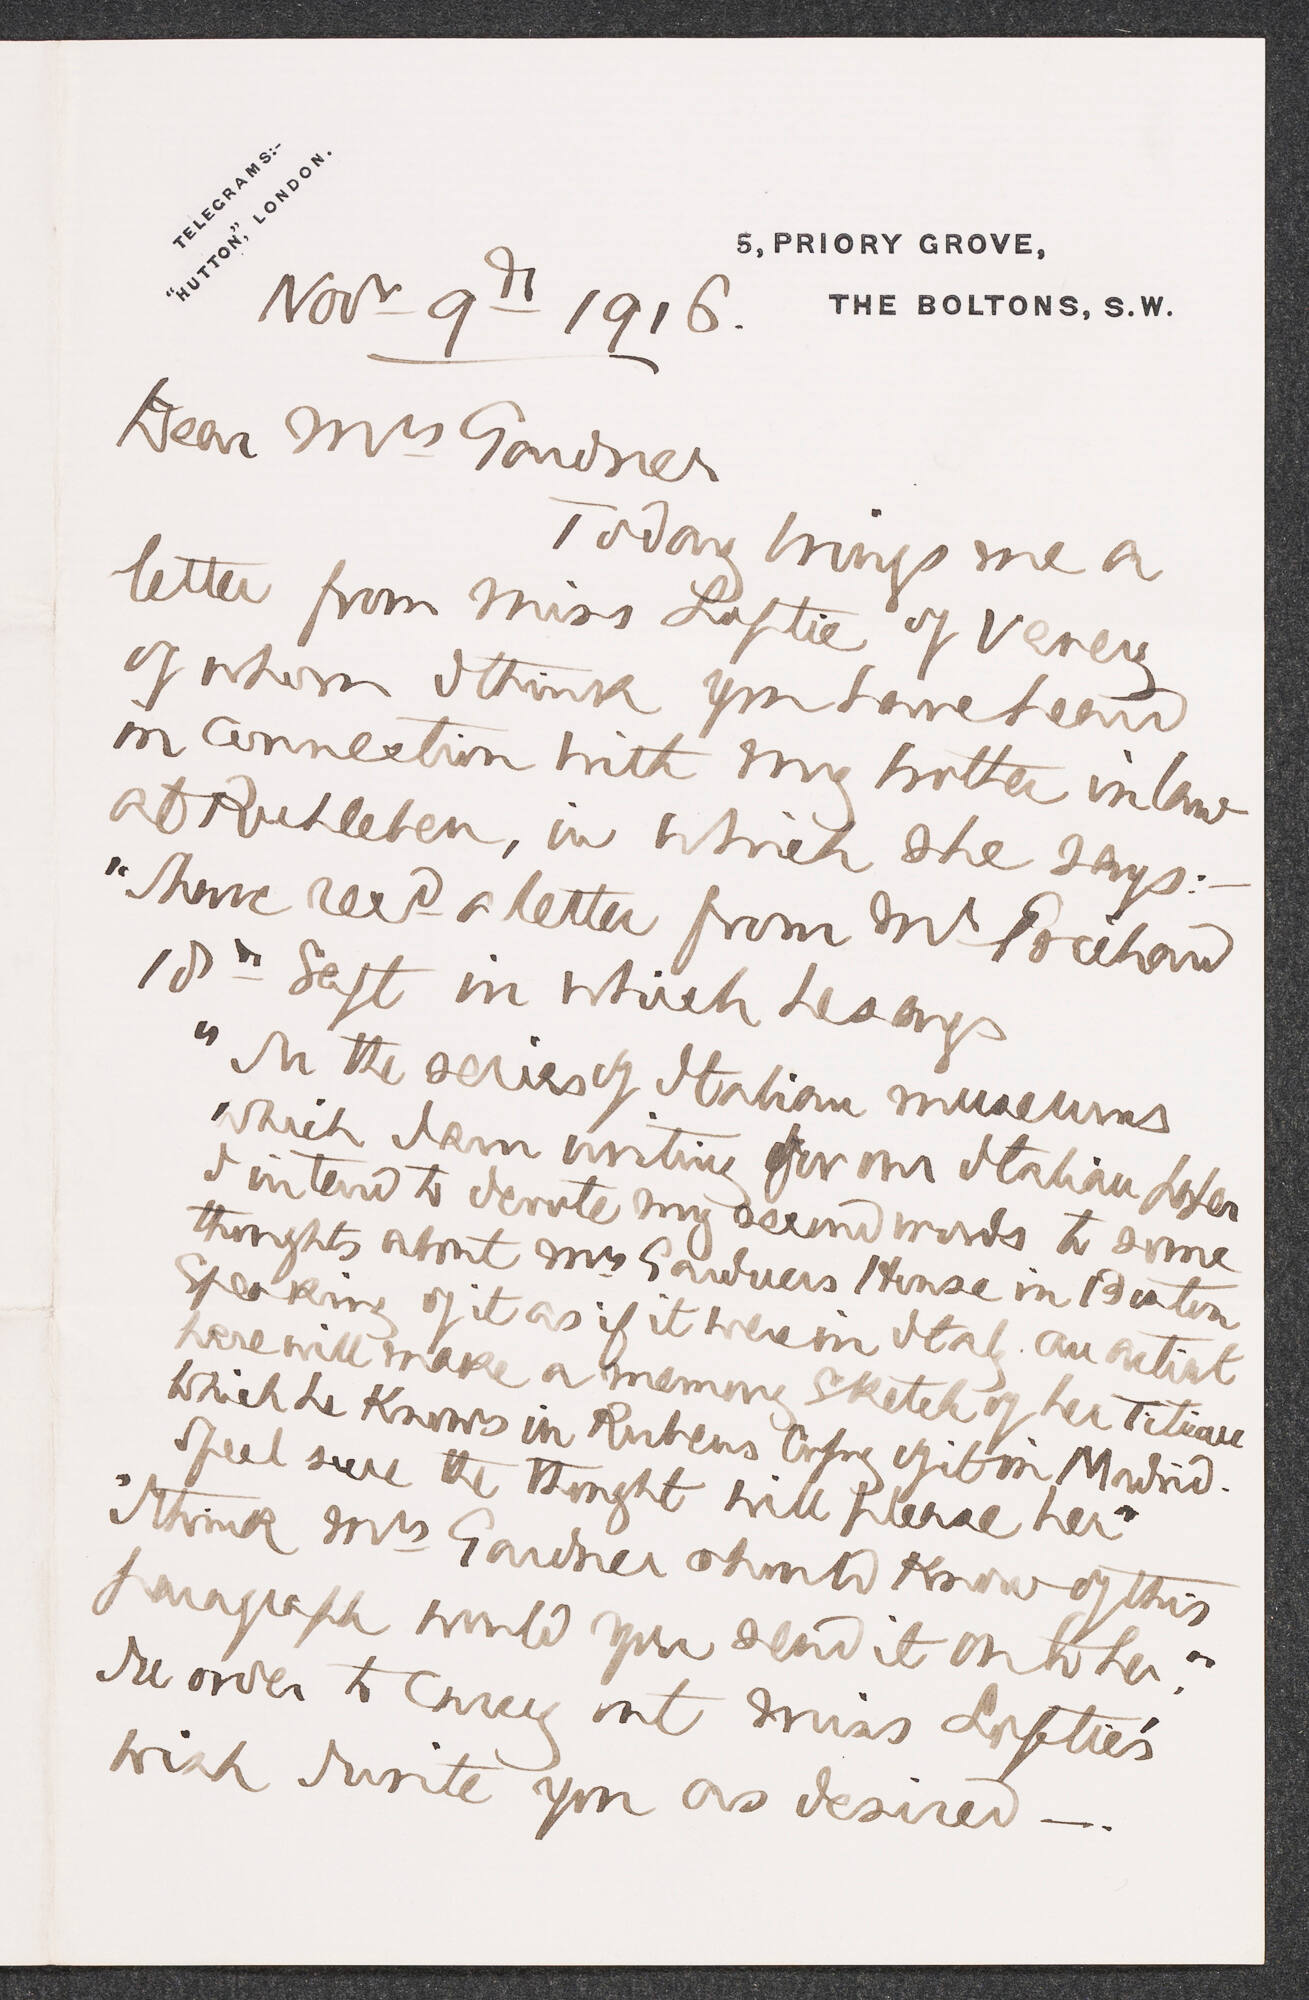 TELEGRAMS:-
"HUTTON," LONDON.
5, PRIORY GROVE,
THE BOLTONS, S.W.
Novr 9th 1916.
Dear Mrs Gardner
Today brings me a
letter from Miss Loftie of Veney
of whom I think you have heard
in connection with my brother in law
at Ruhleben, in which she says:-
"I have recd a letter from Mr Prichard
18th Sept in which he says
"In the series of Italian museums
"which I am writing for our Italian paper
I intend to devote my second words to some
thoughts about Mrs Gardners House in Boston
Speaking of it as if it were in Italy. An artist
here will make a memory sketch of her Titian
which he knows in Rubens Copy of it in Madrid.
I feel sure the thought will please her"
"I think Mrs Gardner should know of this
paragraph would you send it on to her,"
In order to carry out Miss Loftie's
wish I write you as desired —.